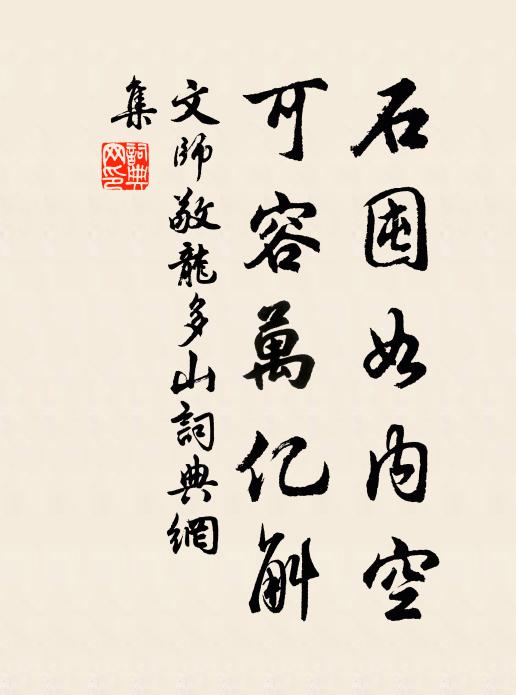 石囷如内空
可容萬亿斛
文師敬龍多山詞典網
集
詞典網印